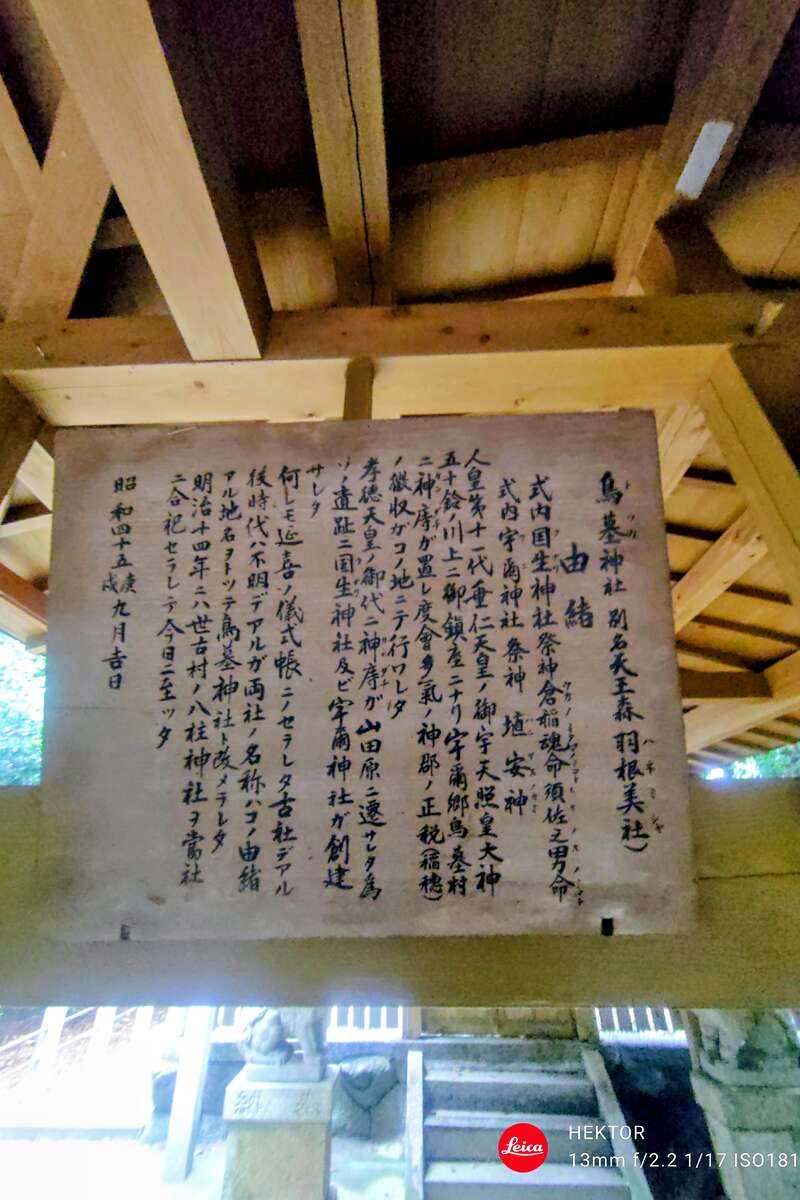 鳥墓神社 別名天王森 羽根美社)
由緒
式内国生神社祭神倉稲魂命須佐之男命
式内宇爾神社 祭神 埴安神
人皇第十一代垂仁天皇ノ御宇天照皇大神
五十鈴ノ川上ニ御鎮座ニナリ宇爾郷鳥墓村
ニ神庤ガ置レ度會多氣ノ神郡ノ正税(稲穂)
ノ徴収ガコノ地ニテ行ワレタ
孝徳天皇ノ御代ニ神庤ガ山田原ニ遷サレタ為
ソノ遺趾ニ国生神社及ビ宇爾神社ガ創建
サレタ
何レモ延喜ノ儀式帳ニノセラレタ古社デアル
後時代ハ不明デアルガ両社ノ名称ハコノ由緒
アル地名ヲトッテ鳥墓神社ト改メラレタ
明治十四年ニハ世古村ノ八柱神社ヲ當社
ニ合祀セラレテ今日ニ至ッタ
昭和四十五庚戌九月吉日
Leica
HEKTOR
13mm f/2.2 1/17 ISO181